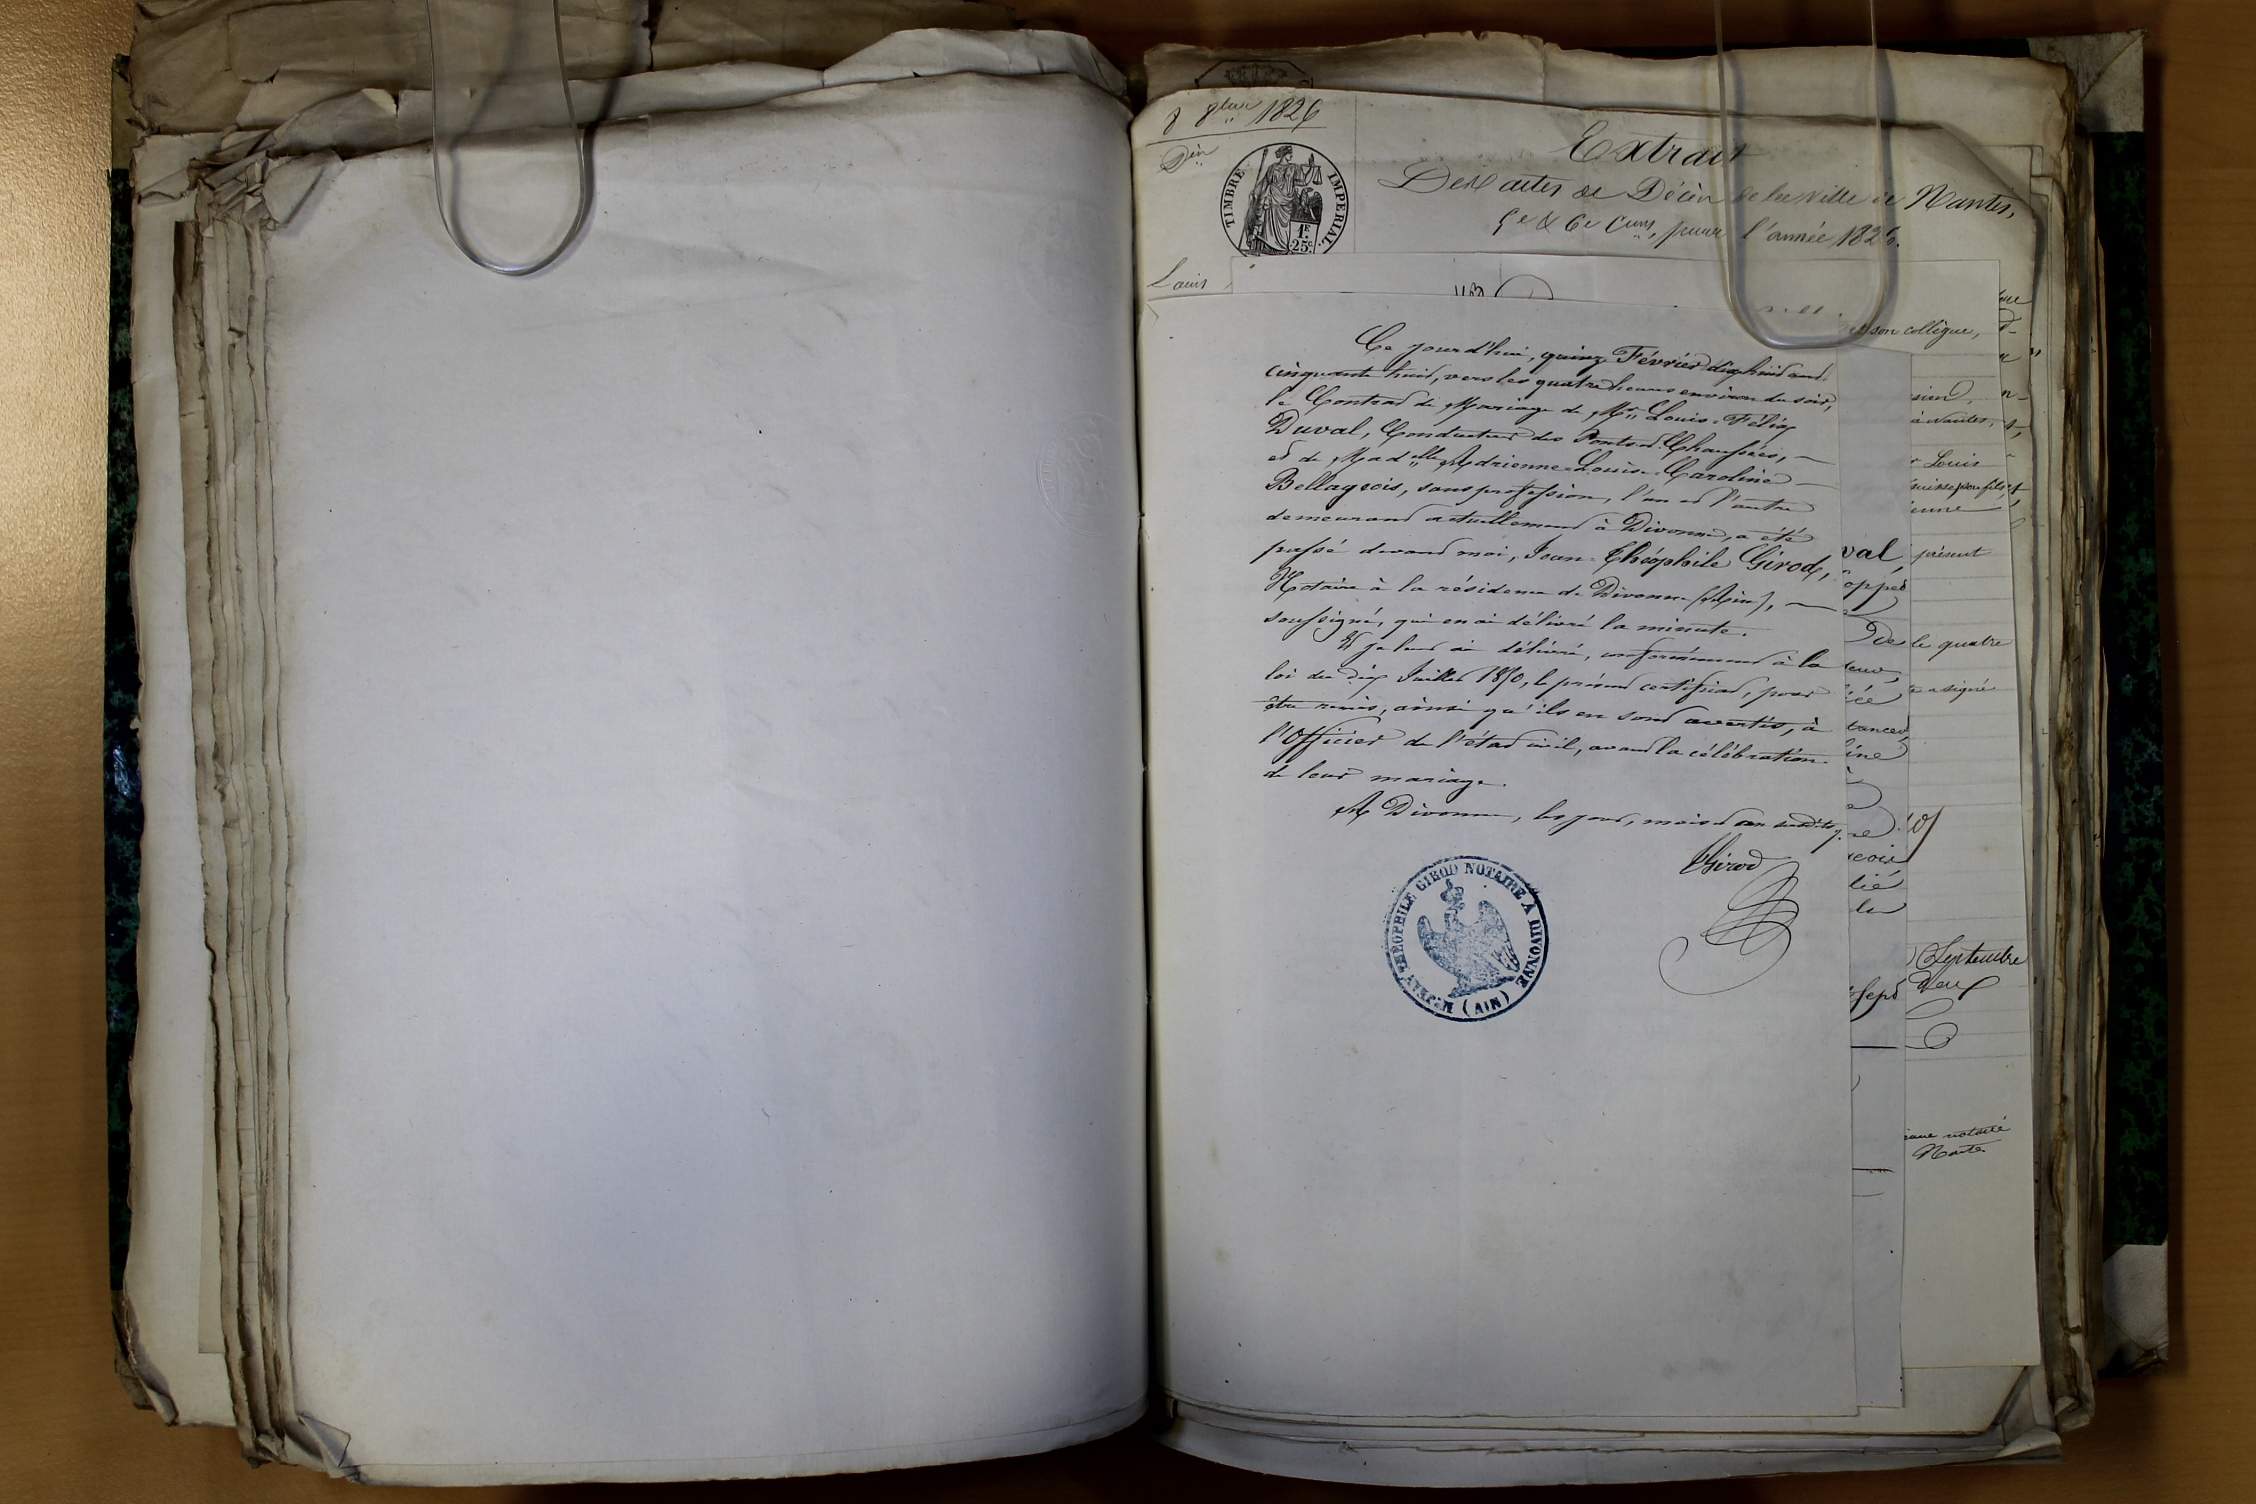 8 8bre 1826
Décès
TIMBRE IMPERIAL
1F.
25c
Extrait
Des actes de Décès de la ville de Nantes,
5e & 6e Cons, pour l'année 1826.
Louis
Ce jourd'hui, quinze Février dix huit cent
cinquante huit, vers les quatre heures environ du soir,
le Contrat de Mariage de Mr. Louis-Félix
Duval, Conducteur des Ponts et Chaussées, —
et de Madelle Adrienne-Louise-Caroline —
Bellageois, sans profession, l'un et l'autre
demeurant actuellement à Divonne, a été
passé devant moi, Jean-Théophile Girod,
Notaire à la résidence de Divonne (Ain), —
soussigné, qui en ai délivré la minute.
Et je leur ai délivré, conformément à la
loi du dix Juillet 1850, le présent certificat, pour
être remis, ainsi qu'ils en sont avertis, à
l'Officier de l'état civil, avant la célébration
de leur mariage.
A Divonne, les jour, mois et an susdits.
Girod
THEOPHILE GIROD NOTAIRE A DIVONNE
(AIN)
son collègue,
à Nantes,
Louis
val, présent
de le quatre
a signé
tances,
line
lié
Septembre
sept deux
notaire
Nantes